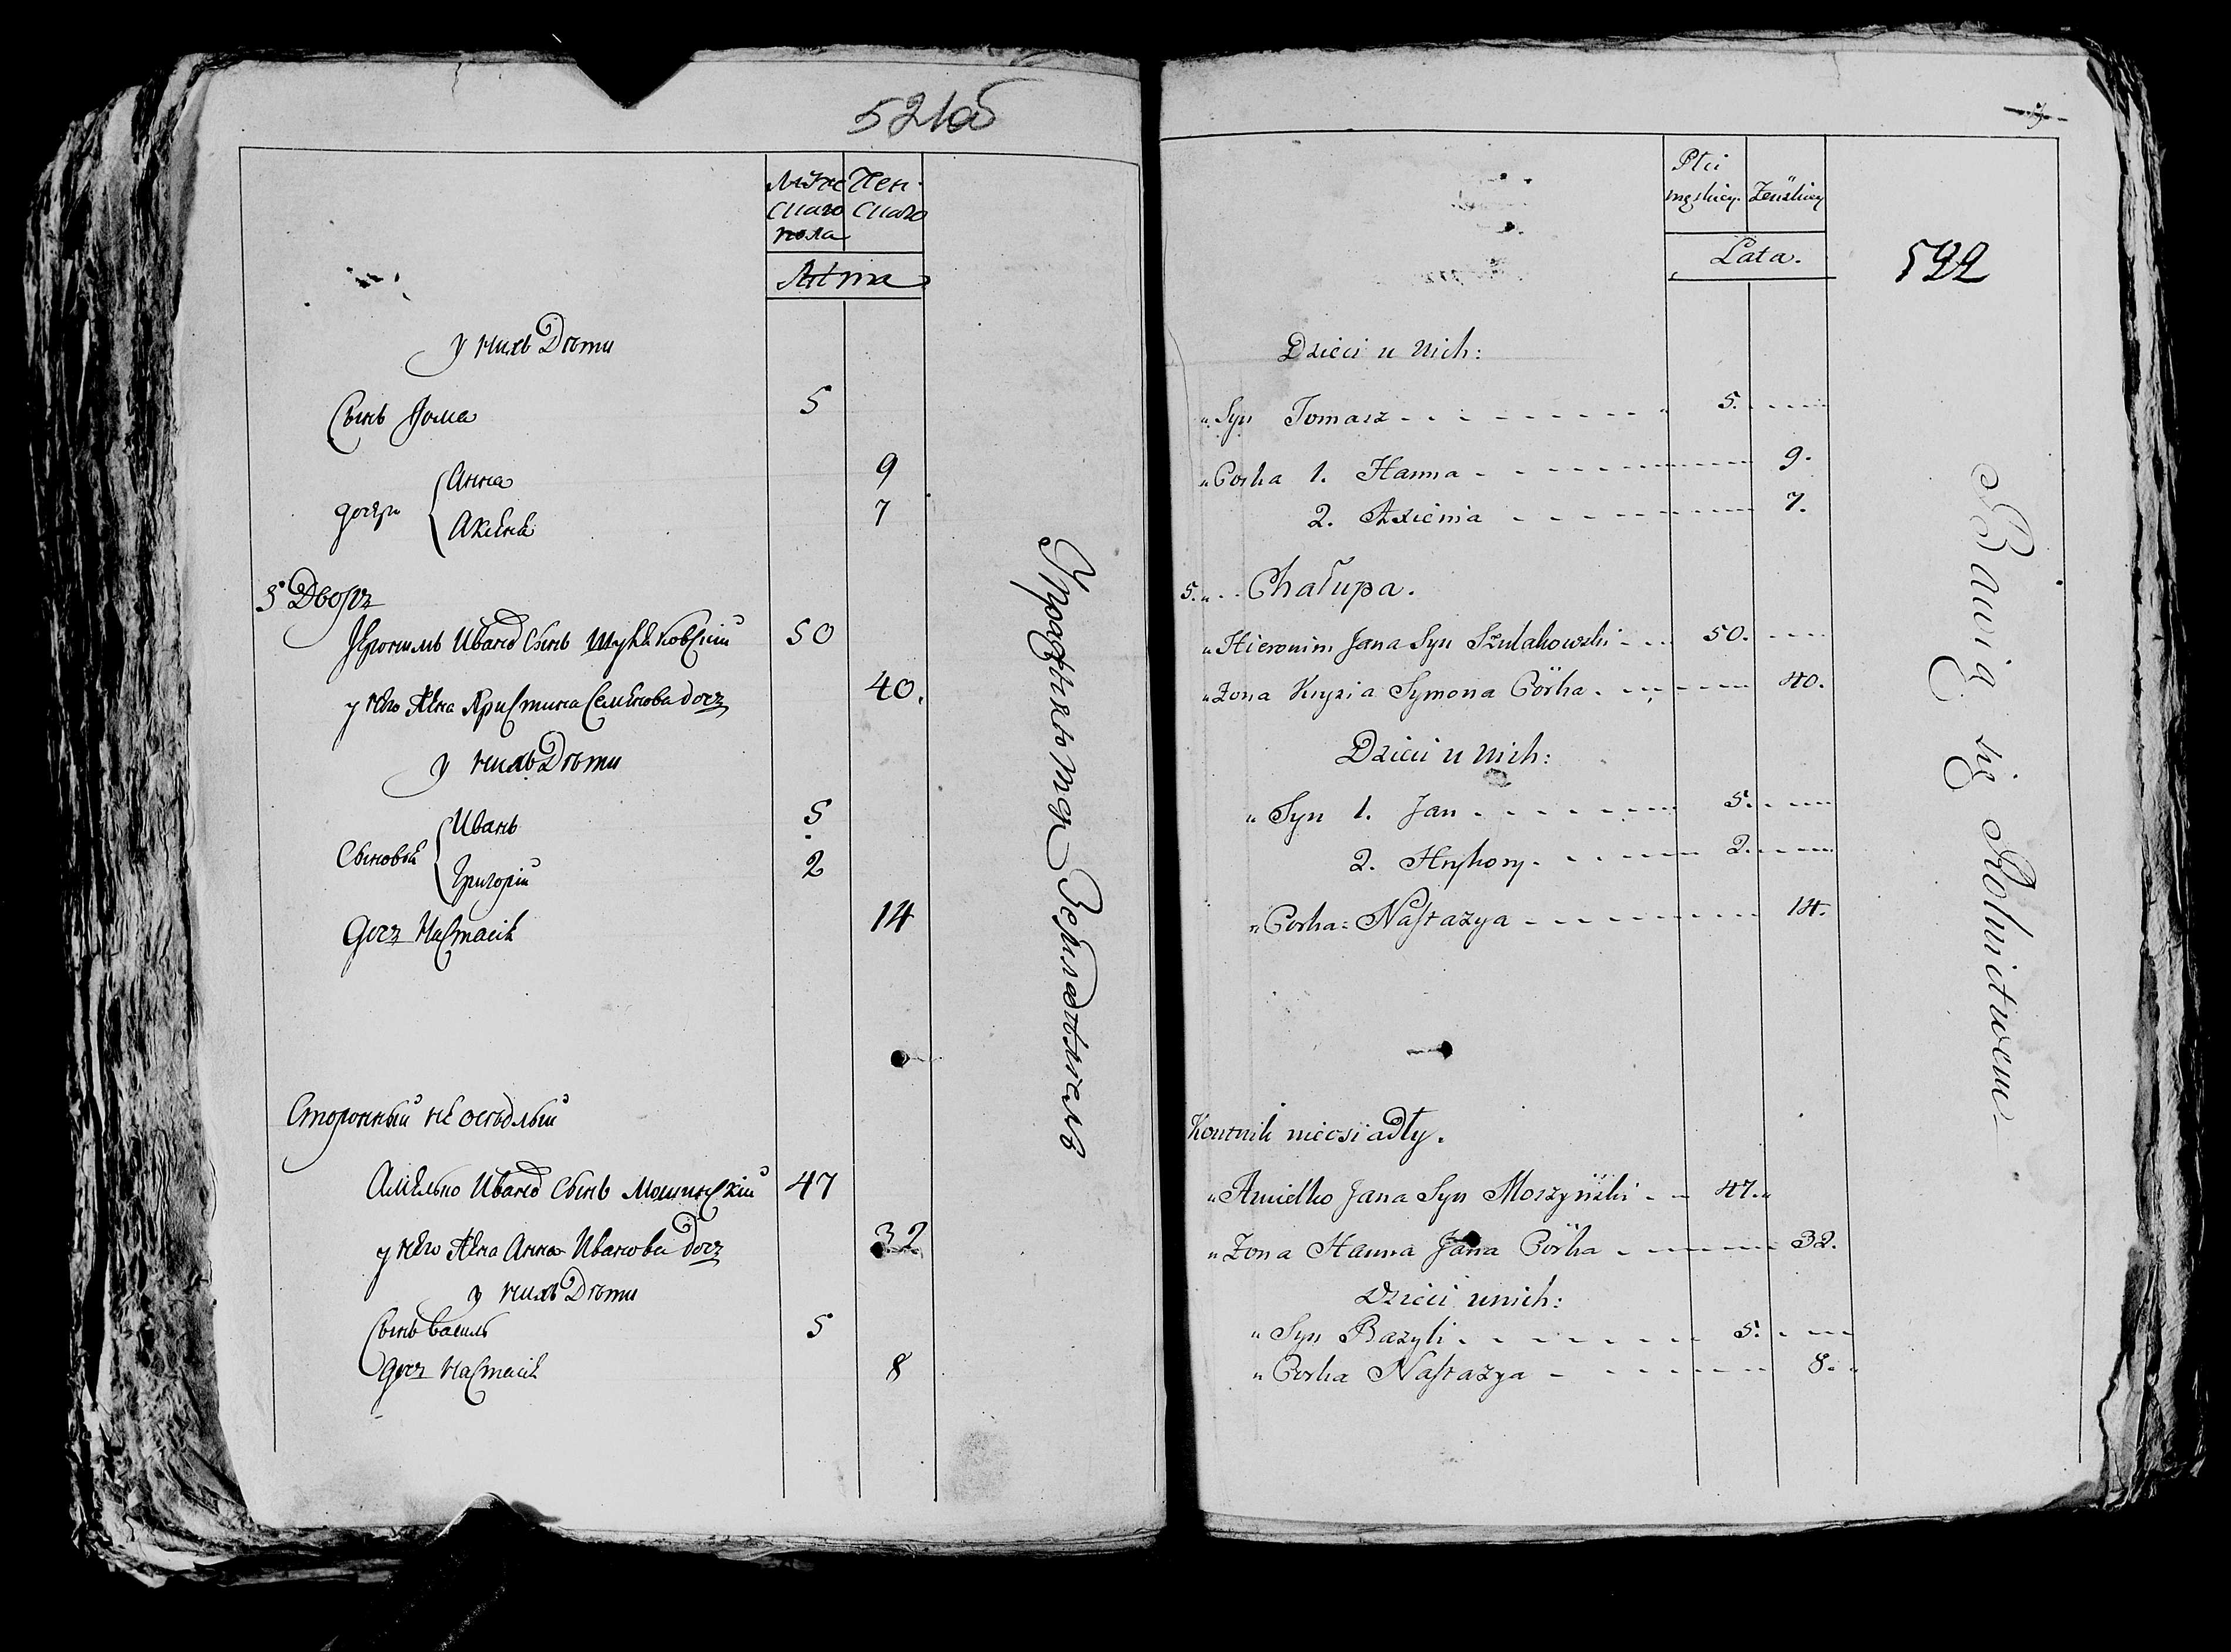 521об
Мужс Жен
скаго скаго
пола
Лѣта
у нихъ Дѣти
Сынъ Фома 5
дочери Анна 9
Аксенѣя 7
5 Дворъ
Ярониль Иванов Сынъ Шулѣковский 50
у него Жена Кристина Семенова дочь 40.
у нихъ Дѣти
Сыновей Иванъ 5
Григорий 2
дочь Настасия 14
Сторонный не оседлый
Амельно Иванов Сынъ Мошинский 47
у него Жена Анна Иванова дочь 32
у нихъ Дѣти
Сынъ Василь 5
дочь Настасия 8
Упражняются Земледелиемъ
Płci
męskiey. Żeńskiey
Lata.
522
Dzieci u nich:
„ Syn Tomasz 5.
„ Corka 1. Hanna 9.
2. Axienia 7.
5. „ Chałupa.
„ Hieronim Jana Syn Szulakowski 50.
„ Żona Kryzia Symona Córka 40.
Dzieci u nich:
„ Syn 1. Jan 5.
2. Hryhory 2.
„ Corka: Nastazya 14.
Kontnik nieosiadły.
„ Amielko Jana Syn Moszyński 47.
„ Żona Hanna Jana Córka 32.
Dzieci u nich:
„ Syn Bazyli 5.
„ Corka Nastazya 8.
Bawią się Rolnictwem